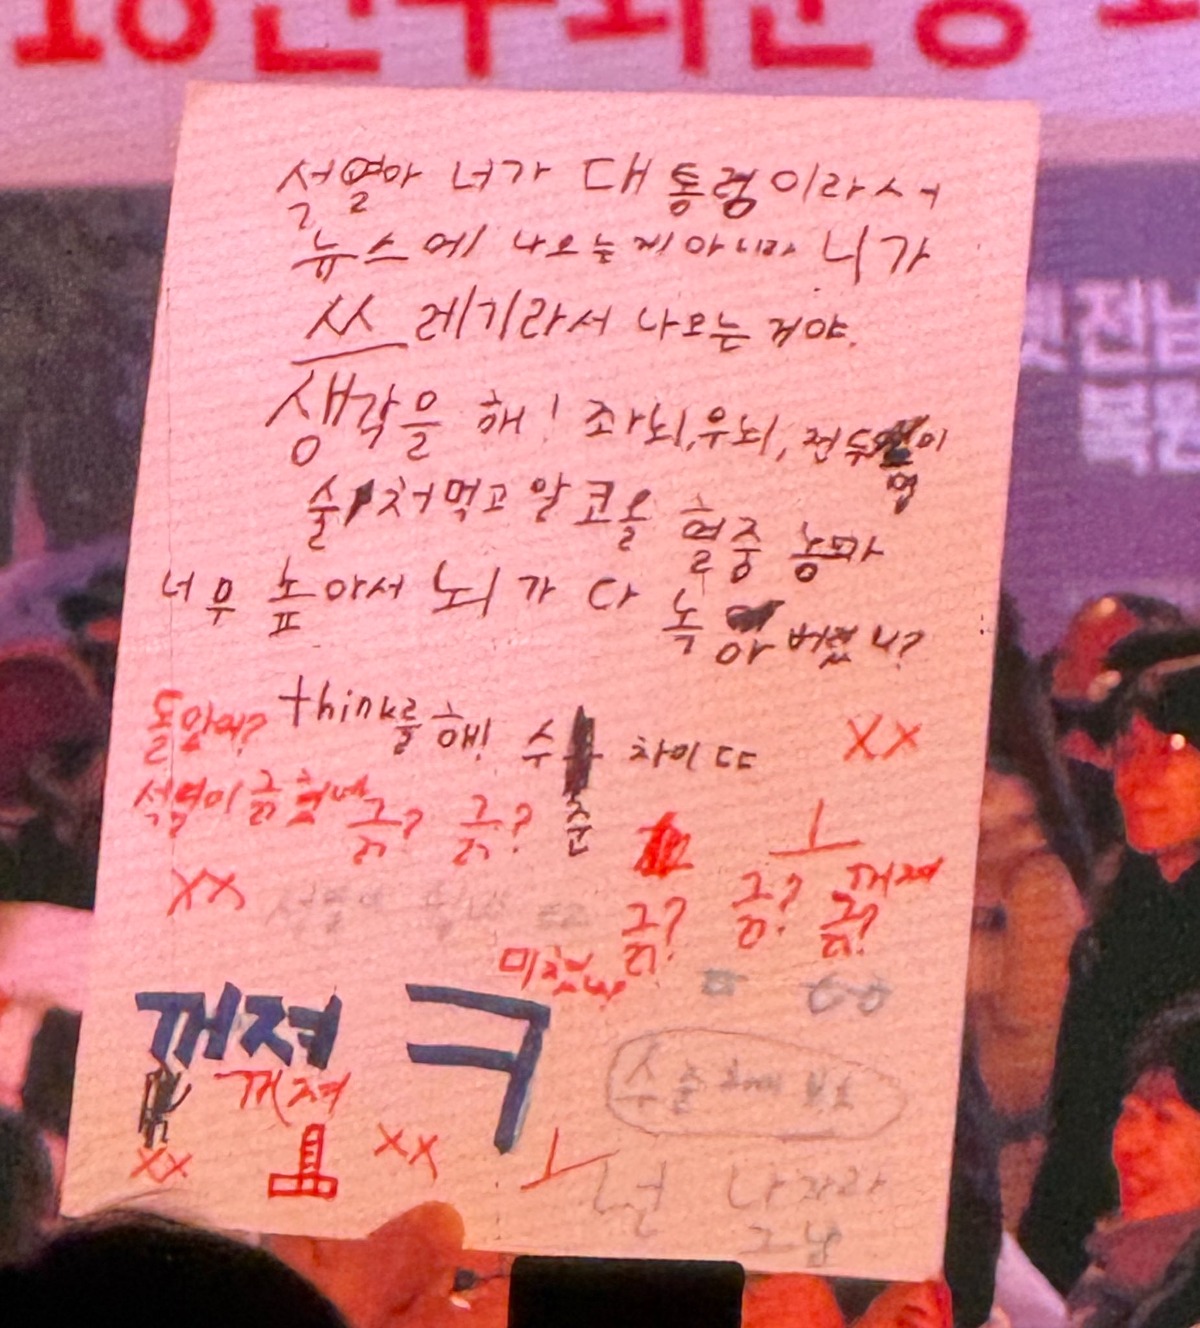 18민주화운동
석열아 너가 대통령이라서
뉴스에 나오는게 아니라 니가
쓰레기라서 나오는 거야.
생각을 해! 좌뇌, 우뇌, 전두엽이
술 처먹고 알코올 혈중 농파
너무 높아서 뇌가 다 녹아 버렸니?
돌았어?
think를 해! 수준 차이 ㄷㄷ
XX
석열이 긁혔네
긁? 긁?
ㅗ
꺼져
XX
긁? 긁? 긁?
미쳤나
꺼져 ㅋ
꺼져
XX
XX
ㅗ
넌 나자라
그냥
전남